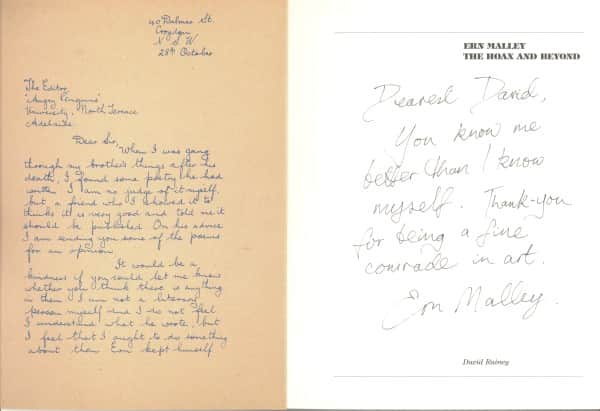 40 Dalmar St.
Croydon
N.S.W
28th October
The Editor
"Angry Penguins"
University, North Terrace
Adelaide.
Dear Sir,
When I was going
through my brother's things after his
death, I found some poetry he had
written. I am no judge of it myself,
but a friend who I showed it to
thinks it is very good and told me it
should be published. On his advice
I am sending you some of the poems
for an opinion.
It would be a
kindness if you could let me know
whether you think there is anything
in them. I am not a literary
person myself and I do not feel
I understand what he wrote, but
I feel that I ought to do something
about them. Ern kept himself
ERN MALLEY
THE HOAX AND BEYOND
Dearest David,
You know me
better than I know
myself. Thank-you
for being a fine
comrade in art.
Ern Malley.
David Rainey